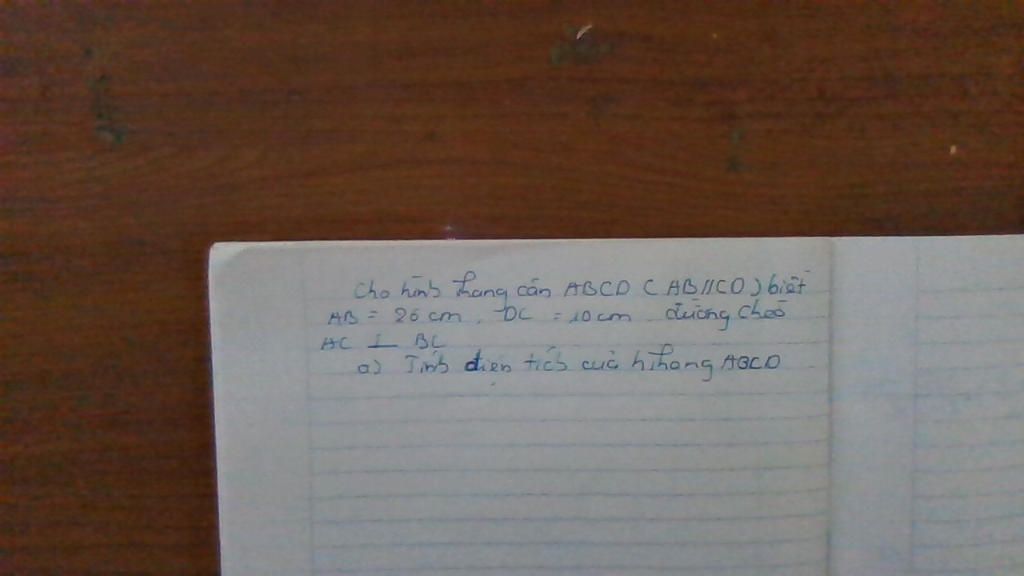 Cho hình thang cân ABCD ( AB//CD ) biết
AB = 26 cm, DC = 10cm đường chéo
AC ⊥ BC
a) Tính diện tích của hthang ABCD